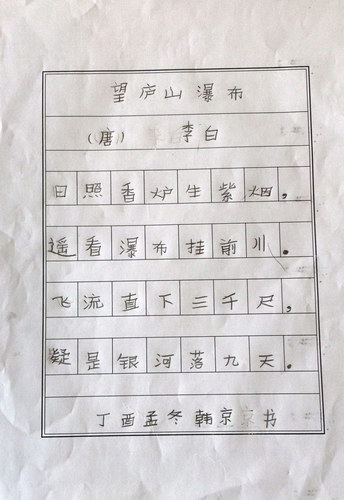 望庐山瀑布
（唐） 李白
日照香炉生紫烟，
遥看瀑布挂前川。
飞流直下三千尺，
疑是银河落九天。
丁酉孟冬韩京京书